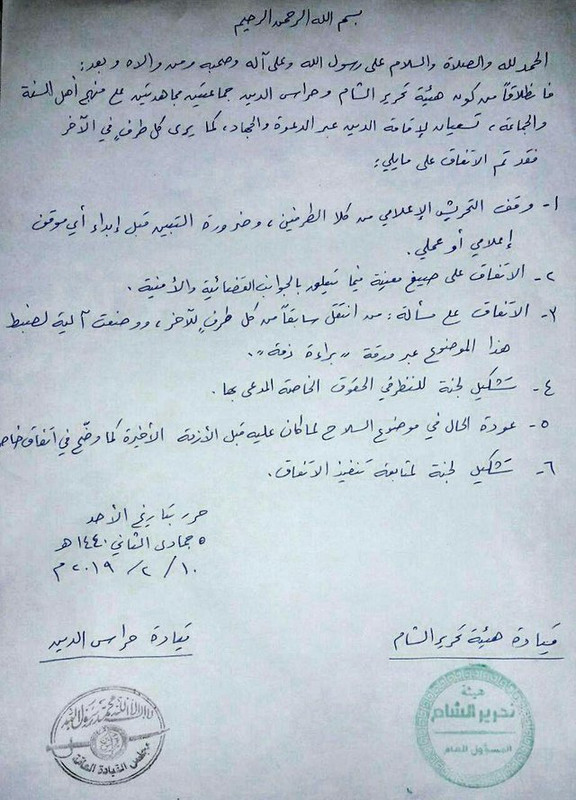 بسم الله الرحمن الرحيم
الحمد لله والصلاة والسلام على رسول الله وعلى آله وصحبه ومن والاه وبعد:
فانطلاقاً من كون هيئة تحرير الشام وحراس الدين جماعتين مجاهدتين على منهج أهل السنة
والجماعة، تسعيان لإقامة الدين عبر الدعوة والجهاد، كما يرى كل طرفٍ في الآخر
فقد تم الاتفاق على مايلي:
١- وقف التحريش الإعلامي من كلا الطرفين، وضرورة التبين قبل إبداء أي موقف
إعلامي أو عملي.
٢- الاتفاق على صيغ معينة فيما يتعلق بالجوانب القضائية والأمنية.
٣- الاتفاق على مسألة: من انتقل سابقاً من كل طرفٍ للآخر، ووضعت آلية لضبط
هذا الموضوع عبر ورقة "براءة ذمة".
٤- تشكيل لجنة للنظر في الحقوق الخاصة المدعى بها.
٥- عودة الحال في موضوع السلاح لما كان عليه قبل الأزمة الأخيرة كما وضّح في اتفاق خاص
٦- تشكيل لجنة لمتابعة تنفيذ الاتفاق.
حرر بتاريخ الأحد
٥ جمادى الثاني ١٤٤٠هـ
١٠/٢/٢٠١٩م
قيادة هيئة تحرير الشام
قيادة حراس الدين
هيئة
تحرير الشام
المسؤول العام
لا إله إلا الله محمد رسول الله
مجلس القيادة العامة